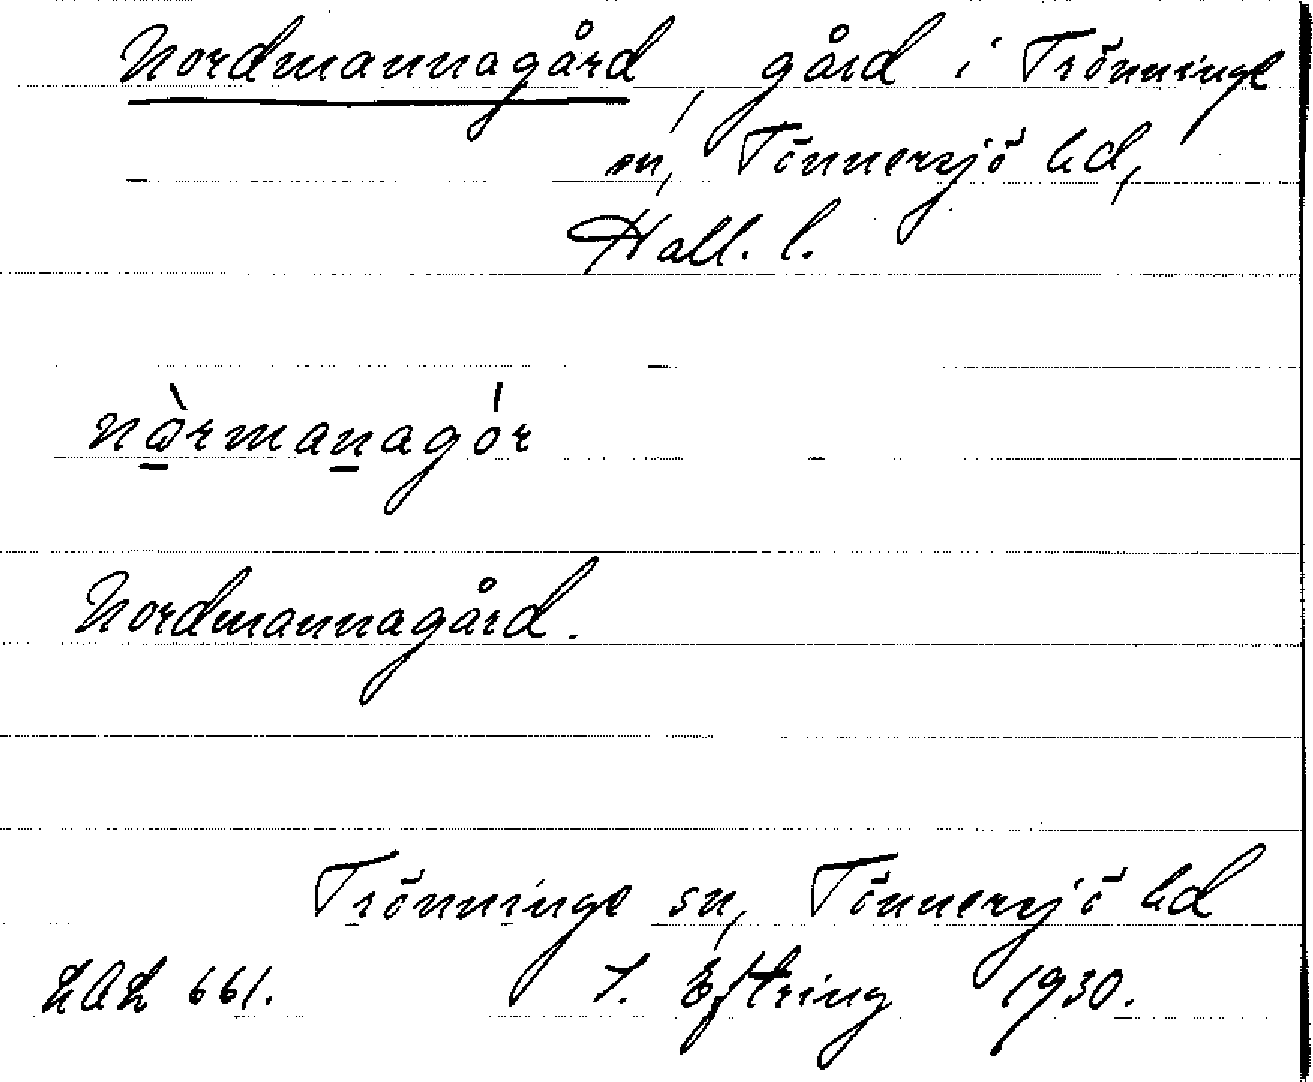 Nordmannagård, gård i Trönninge
sn, Tönnersjö hd,
Hall. l.
nàrmanagór
Nordmannagård.
Trönninge sn, Tönnersjö hd
LAL 661. J. Eftring 1930.